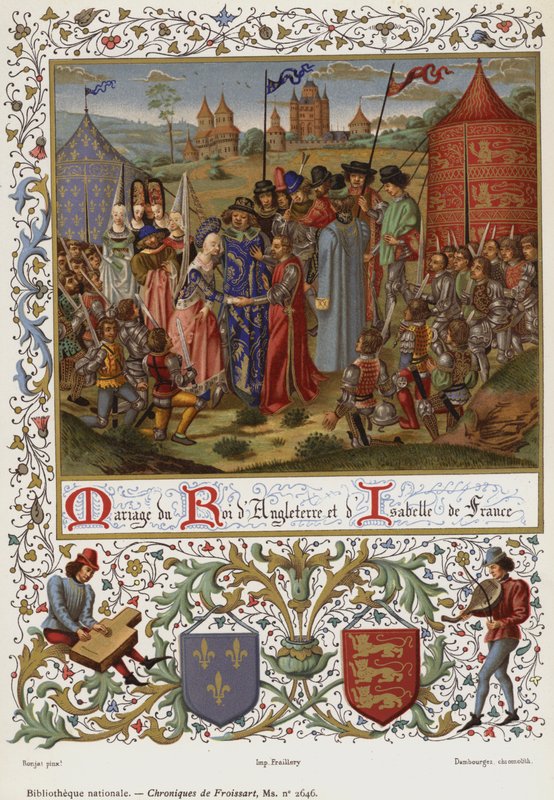 Mariage du Roi d'Angleterre et d'Isabelle de France
Ronjat pinx!
Imp. Fraillery
Dambourgez, chromolith.
Bibliothèque nationale. — Chroniques de Froissart, Ms. nº 2646.